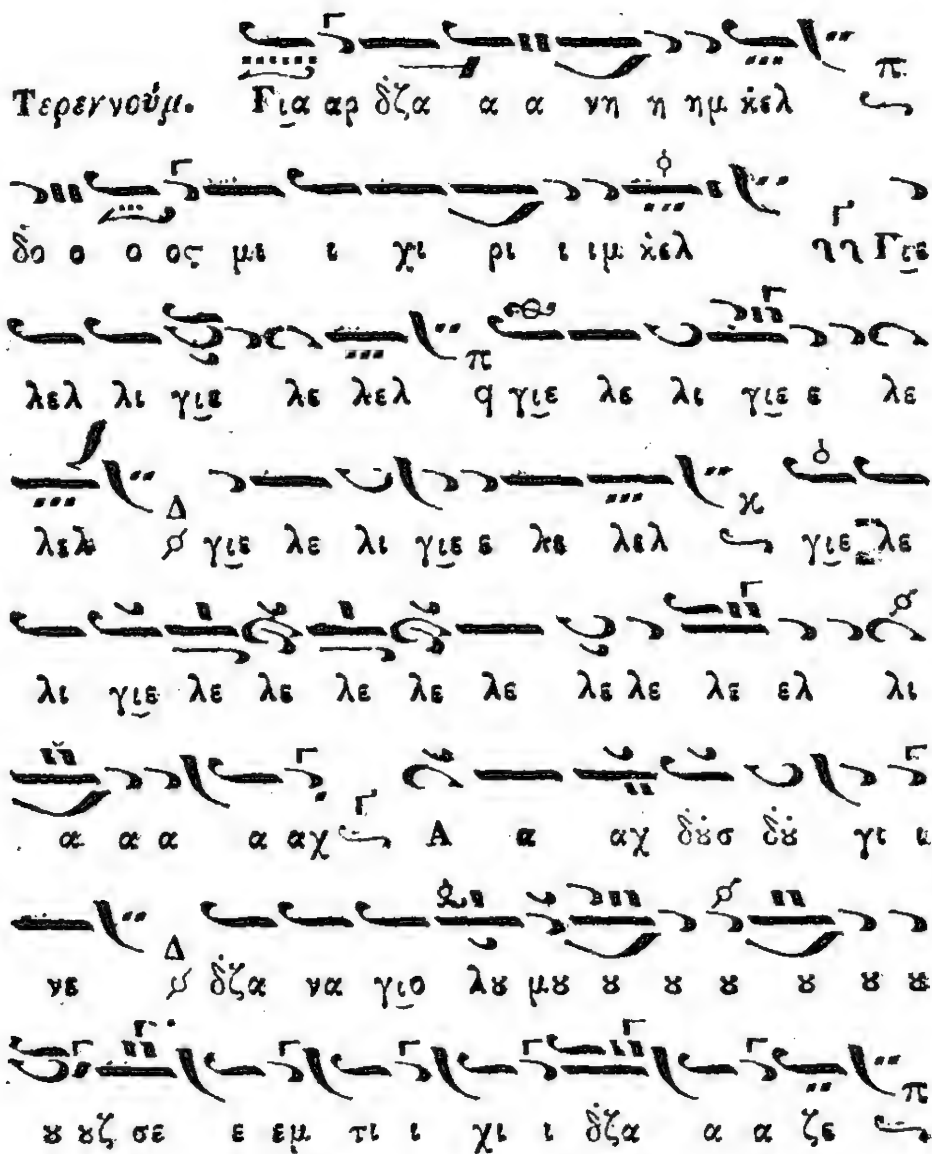 Τερεννούμ. Γι̲α αρ δ̇ζα α α νη η ημ κ̇ελ π
δ̇ο ο ο ος μι ι χι ρι ι ιμ κ̇ελ Γ ηη Γι̲ε
λελ λι γι̲ε λε λελ π q γι̲ε λε λι γι̲ε ε λε
λελ Δ γι̲ε λε λι γι̲ε ε λε λελ ϰ γι̲ε λε
λι γι̲ε λε λε λε λε λε λε λε λε ελ λι
α α α α αχ Γ Α α αχ δ̇ȣσ δ̇ȣ γι ι
νε Δ δ̇ζα να γι̲ο λȣ μȣ ȣ ȣ ȣ ȣ ȣ ȣ
ȣ ȣζ σε ε εμ τι ι χι ι δ̇ζα α α ζε π